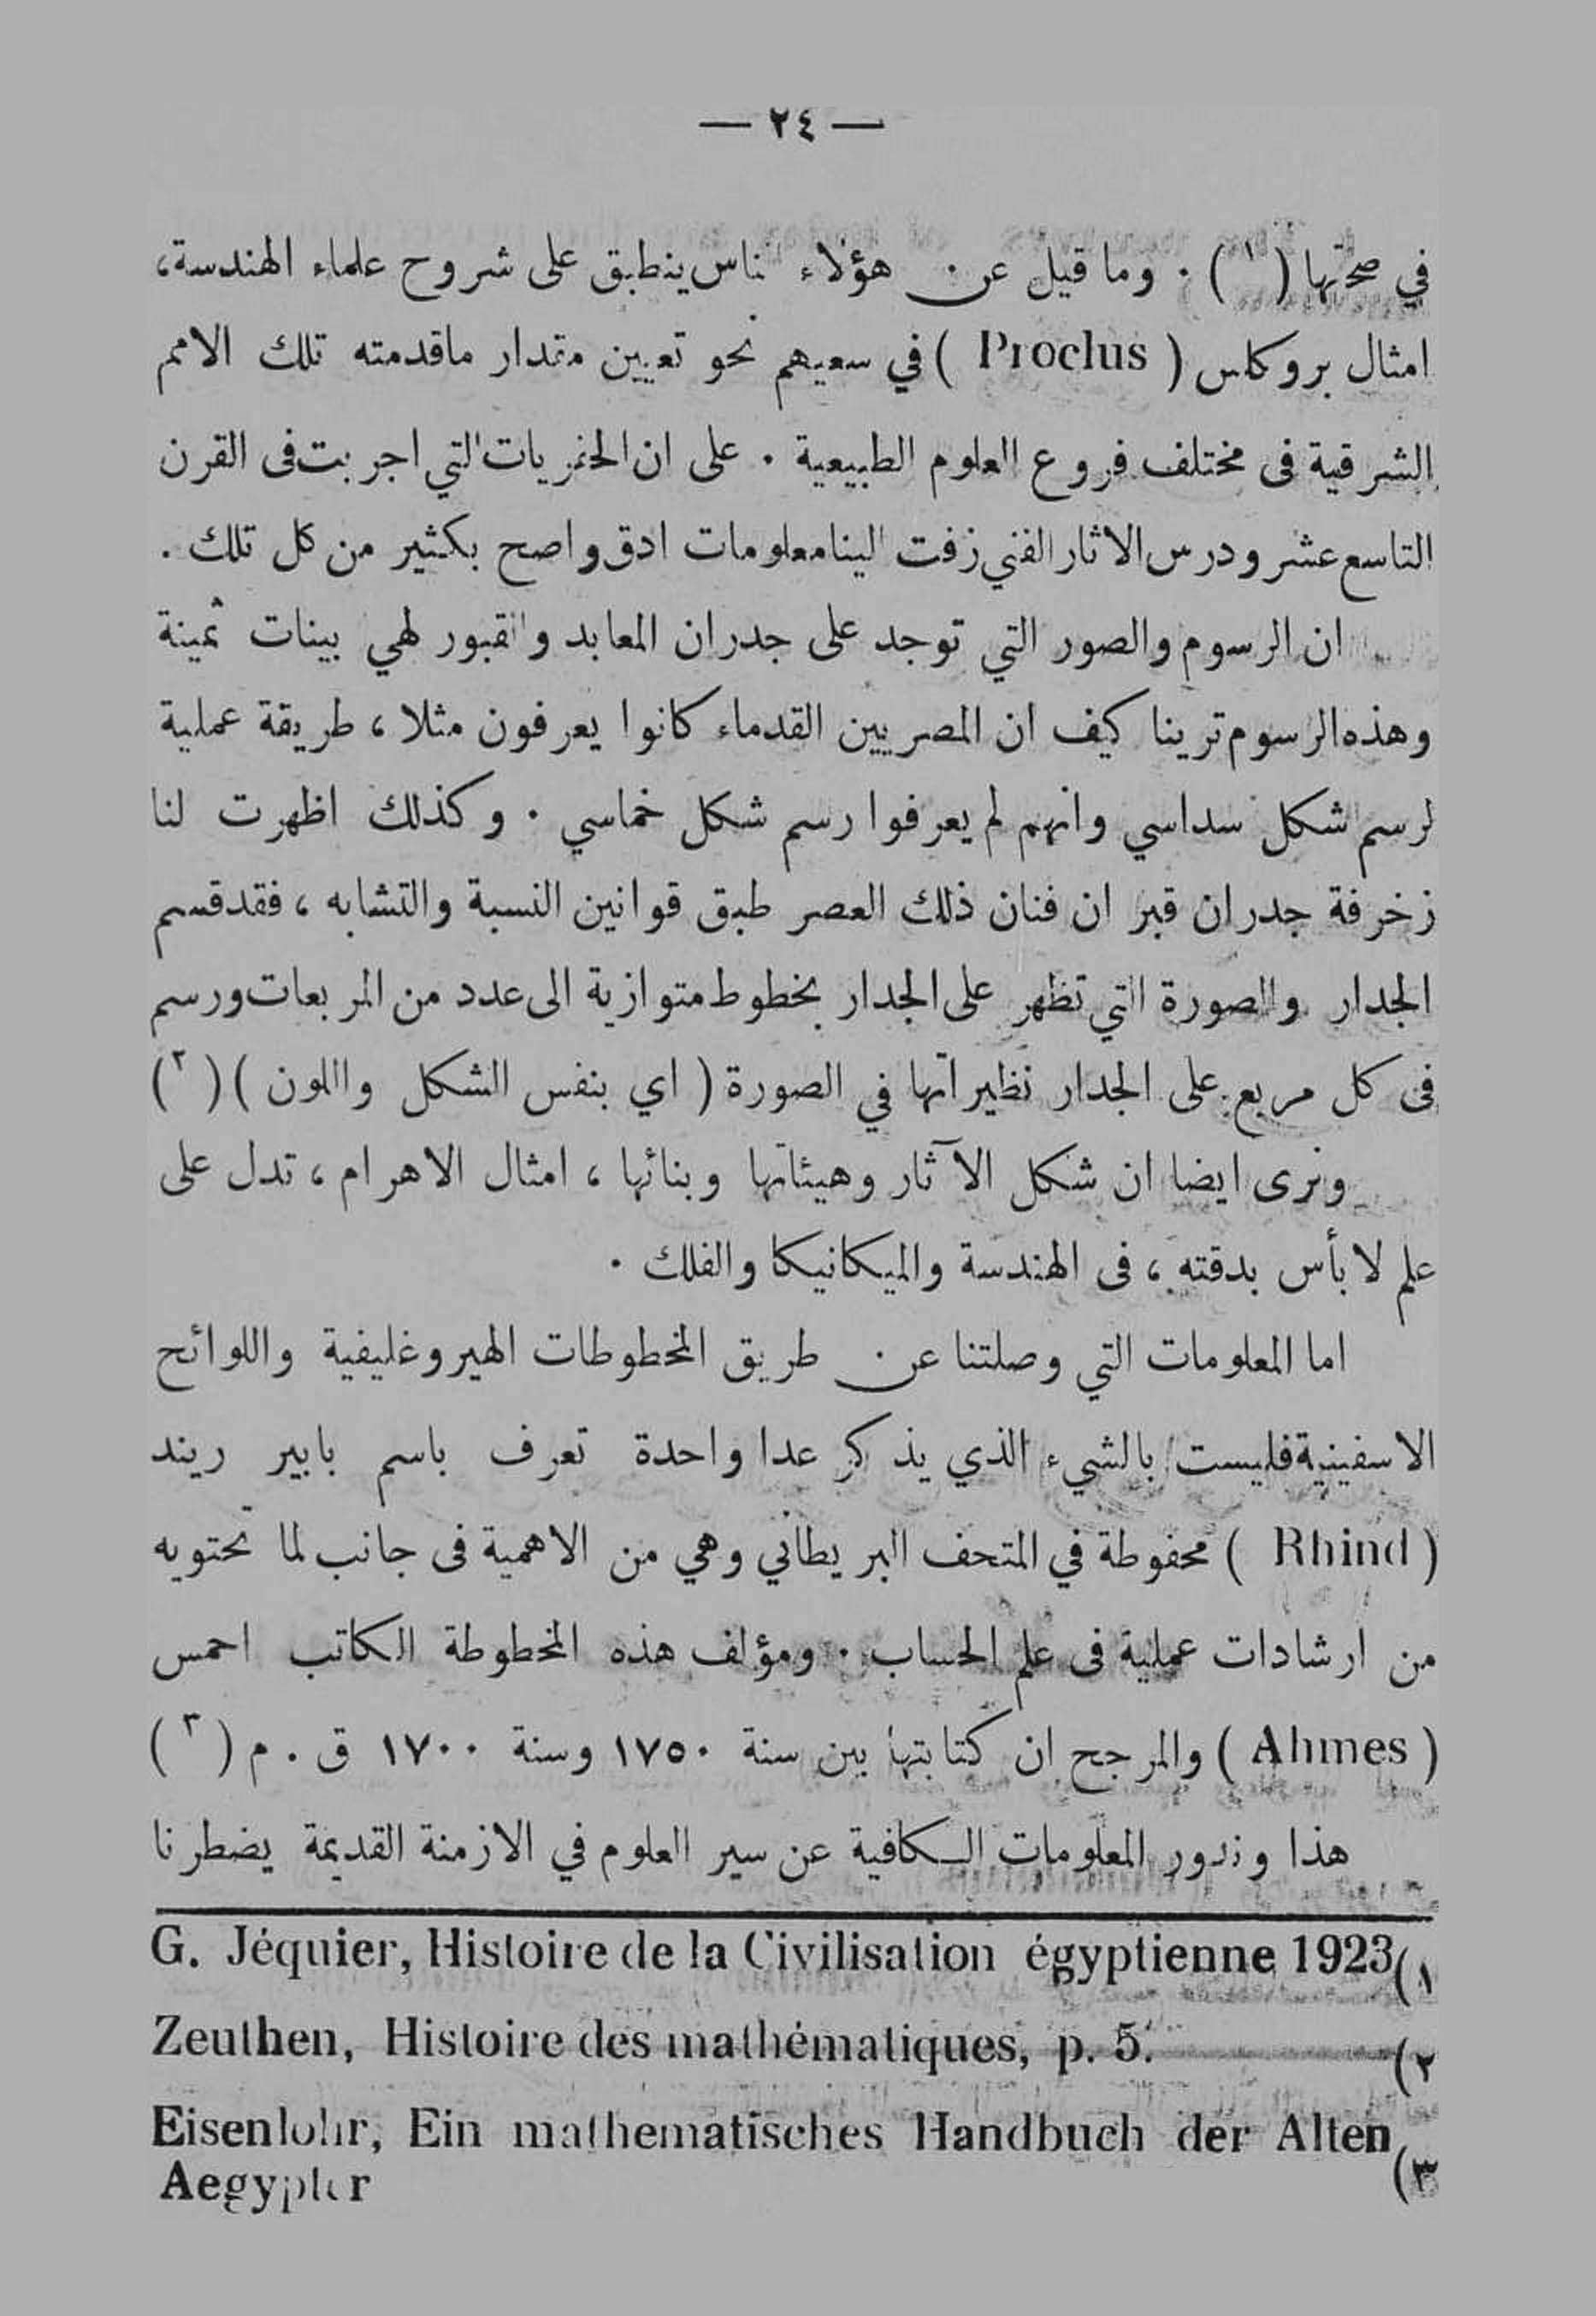 — ٢٤ —
في صحتها (١) . وما قيل عن هؤلاء الناس ينطبق على شروح علماء الهندسة،
امثال بروكلس ( Proclus ) في سعيهم نحو تعيين مقدار ماقدمته تلك الامم
الشرقية فى مختلف فروع العلوم الطبيعية . على ان الحفريات التي اجريت فى القرن
التاسع عشر ودرس الاثار الفني زفت الينا معلومات ادق واصح بكثير من كل تلك .
ان الرسوم والصور التي توجد على جدران المعابد والقبور لهي بينات ثمينة
وهذه الرسوم ترينا كيف ان المصريين القدماء كانوا يعرفون مثلا ، طريقة عملية
لرسم شكل سداسي وانهم لم يعرفوا رسم شكل خماسي . وكذلك اظهرت لنا
زخرفة جدران قبر ان فنان ذلك العصر طبق قوانين النسبة والتشابه ، فقد قسم
الجدار والصورة التي تظهر على الجدار بخطوط متوازية الى عدد من المربعات ورسم
فى كل مربع على الجدار نظيراتها في الصورة ( اي بنفس الشكل واللون ) (٢)
ونرى ايضا ان شكل الآثار وهيئاتها وبنائها ، امثال الاهرام ، تدل على
علم لا بأس بدقته ، فى الهندسة والميكانيكا والفلك .
اما المعلومات التي وصلتنا عن طريق المخطوطات الهيروغليفية واللوائح
الاسفينية فليست بالشيء الذي يذكر عدا واحدة تعرف باسم بابير ريند
( Rhind ) محفوطة في المتحف البريطاني وهي من الاهمية فى جانب لما تحتويه
من ارشادات عملية فى علم الحساب . ومؤلف هذه المخطوطة الكاتب احمس
( Ahmes ) والمرجح ان كتابتها بين سنة ١٧٥٠ وسنة ١٧٠٠ ق . م (٣)
هذا وندور المعلومات الكافية عن سير العلوم في الازمنة القديمة يضطرنا
G. Jéquier, Histoire de la Civilisation égyptienne 1923 (١
Zeuthen, Histoire des mathématiques, p. 5. (٢
Eisenlohr, Ein mathematisches Handbuch der Alten (٣
Aegypter